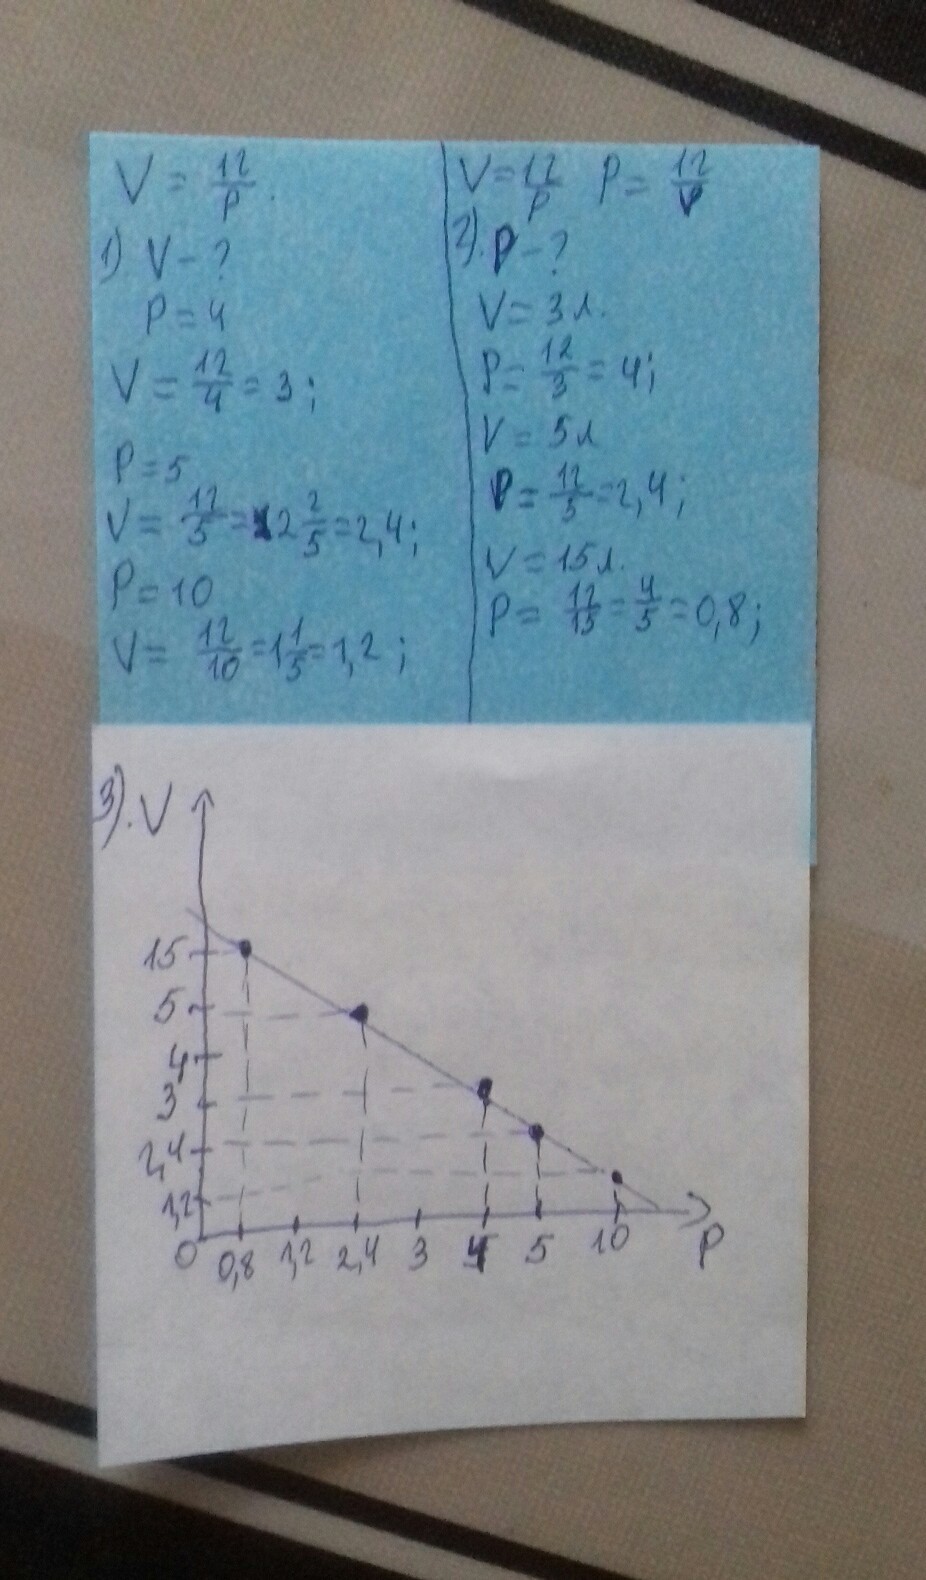 V = 12/p.
1) V - ?
P = 4
V = 12/4 = 3;
P = 5
V = 12/5 = 2 2/5 = 2,4;
P = 10
V = 12/10 = 1 1/5 = 1,2;
V = 12/p P = 12/V
2). P - ?
V = 3 л.
P = 12/3 = 4;
V = 5 л
P = 12/5 = 2,4;
V = 15 л.
P = 12/15 = 4/5 = 0,8;
3). V
15
5
4
3
2,4
1,2
0 0,8 1,2 2,4 3 4 5 10 P